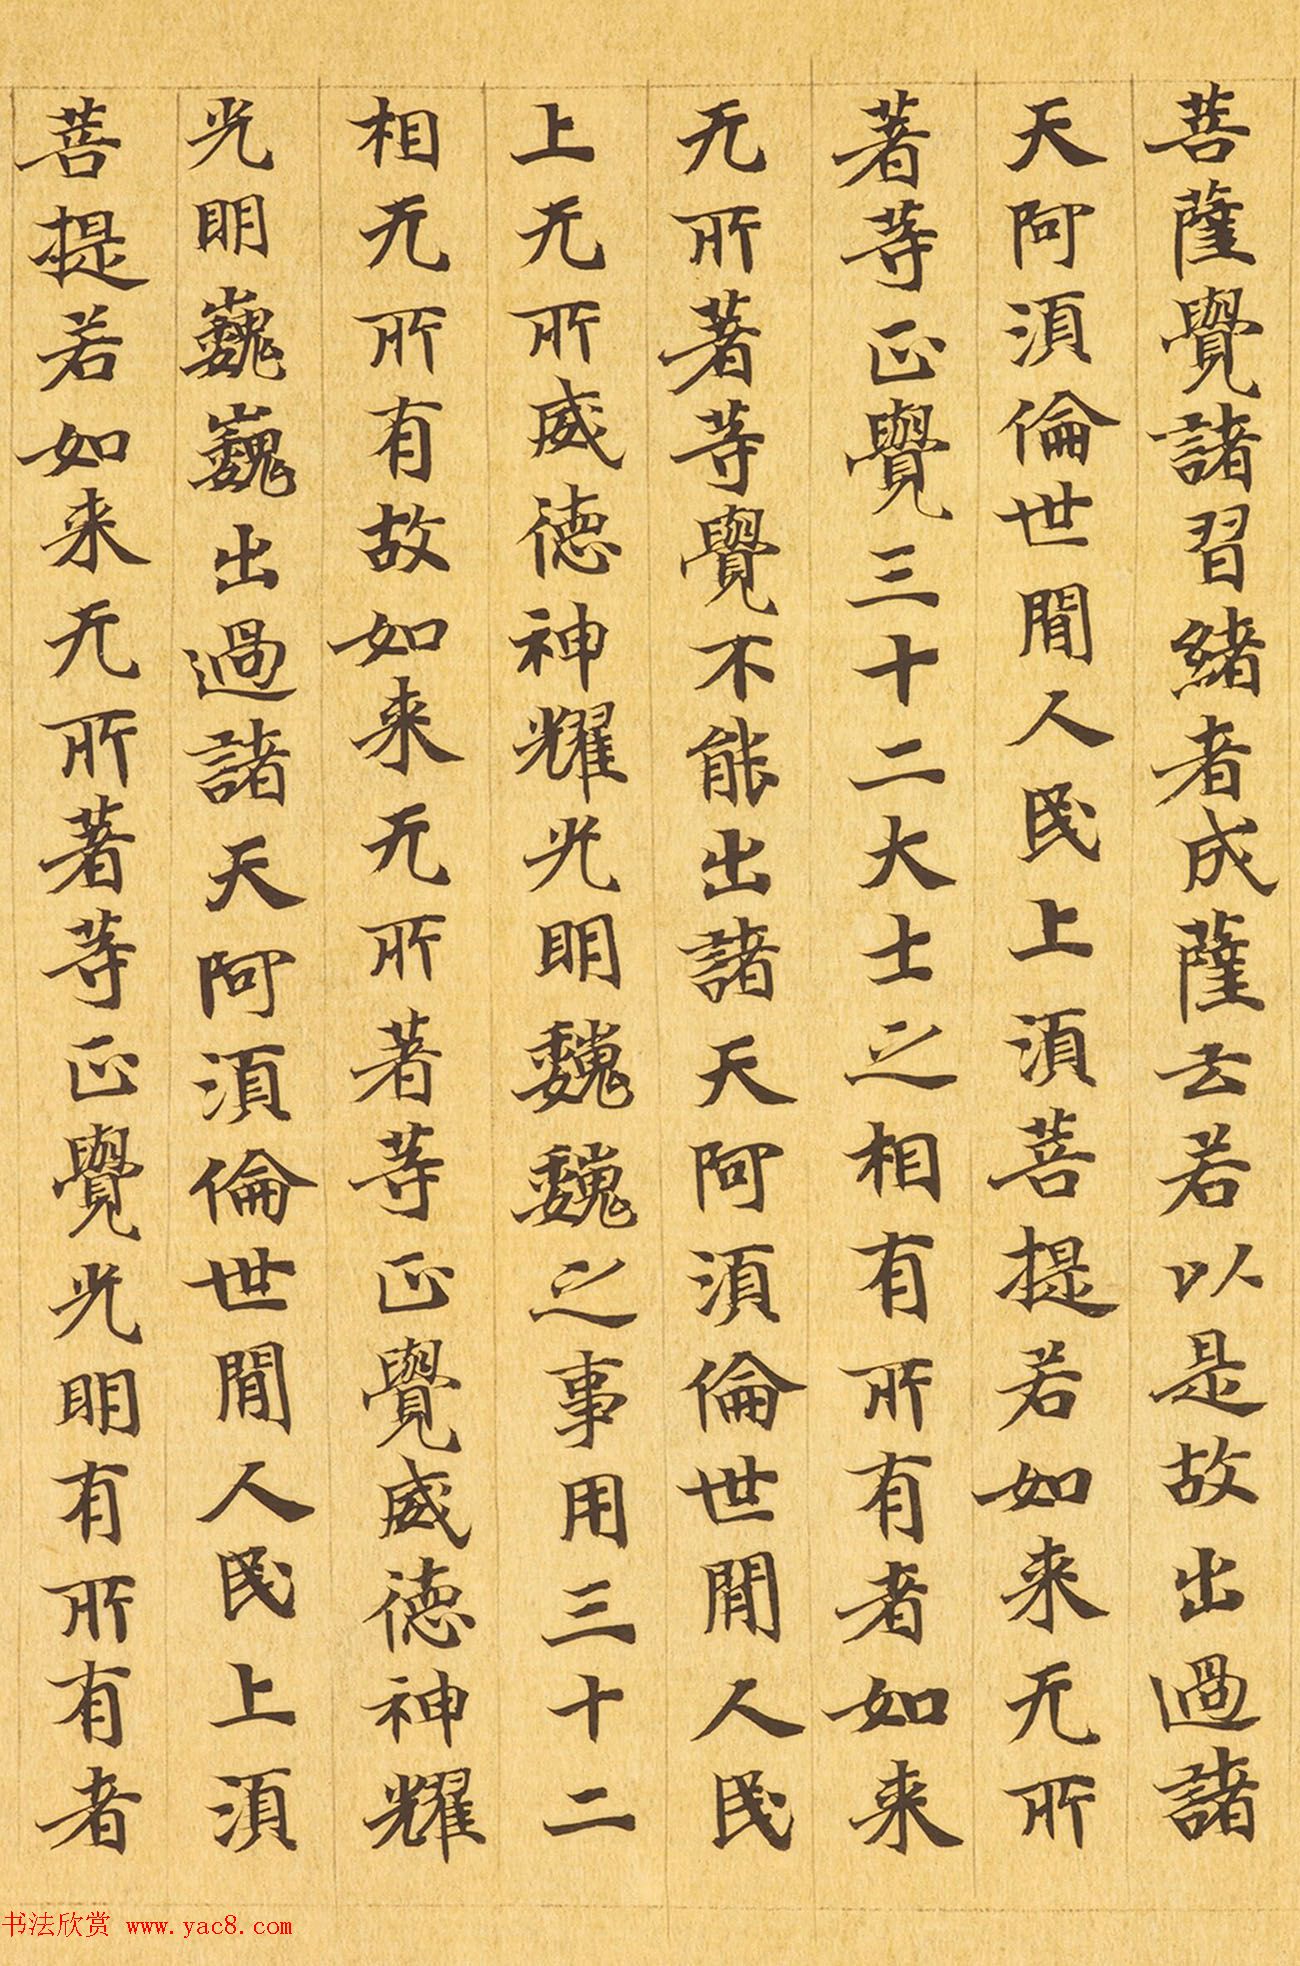 菩薩覺諸習緒者成薩云若以是故出過諸
天阿湏倫世閒人民上湏菩提若如来无所
著等正覺三十二大士之相有所有者如来
无所著等覺不能出諸天阿湏倫世閒人民
上无所威德神耀光明魏魏之事用三十二
相无所有故如来无所著等正覺威德神耀
光明巍巍出過諸天阿湏倫世閒人民上湏
菩提若如来无所著等正覺光明有所有者
书法欣赏 www.yac8.com